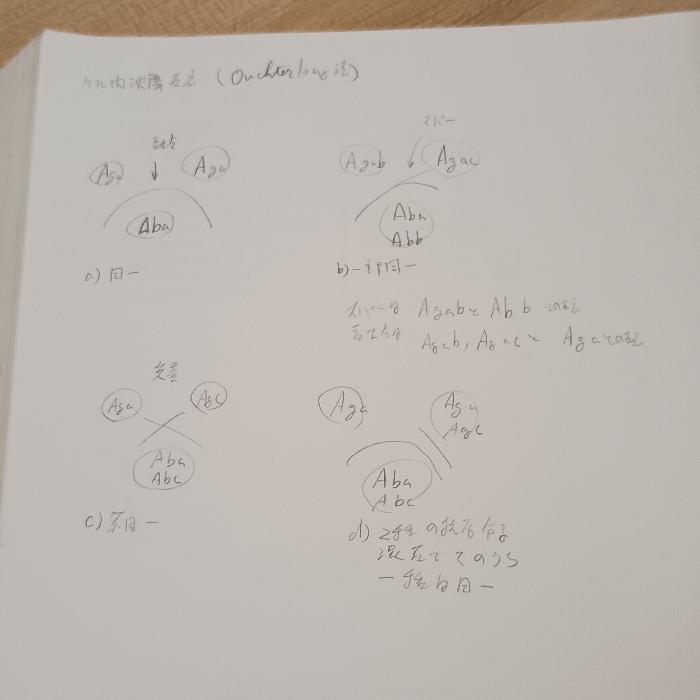 ゲル内沈降反応 (Ouchterlony法)
融合
スパー
Aga
Aga
Agab
Agac
Aba
Aba
Abb
a) 同一
b) 一部同一
スパーは Agabと Abb の反応
融合は Agab, Agac と Abaとの反応
交差
Aga
Agc
Aga
Aga
Agc
Aba
Abc
Aba
Abc
c) 不同一
d) 2種の抗原が
混在しそのうち
一種は同一